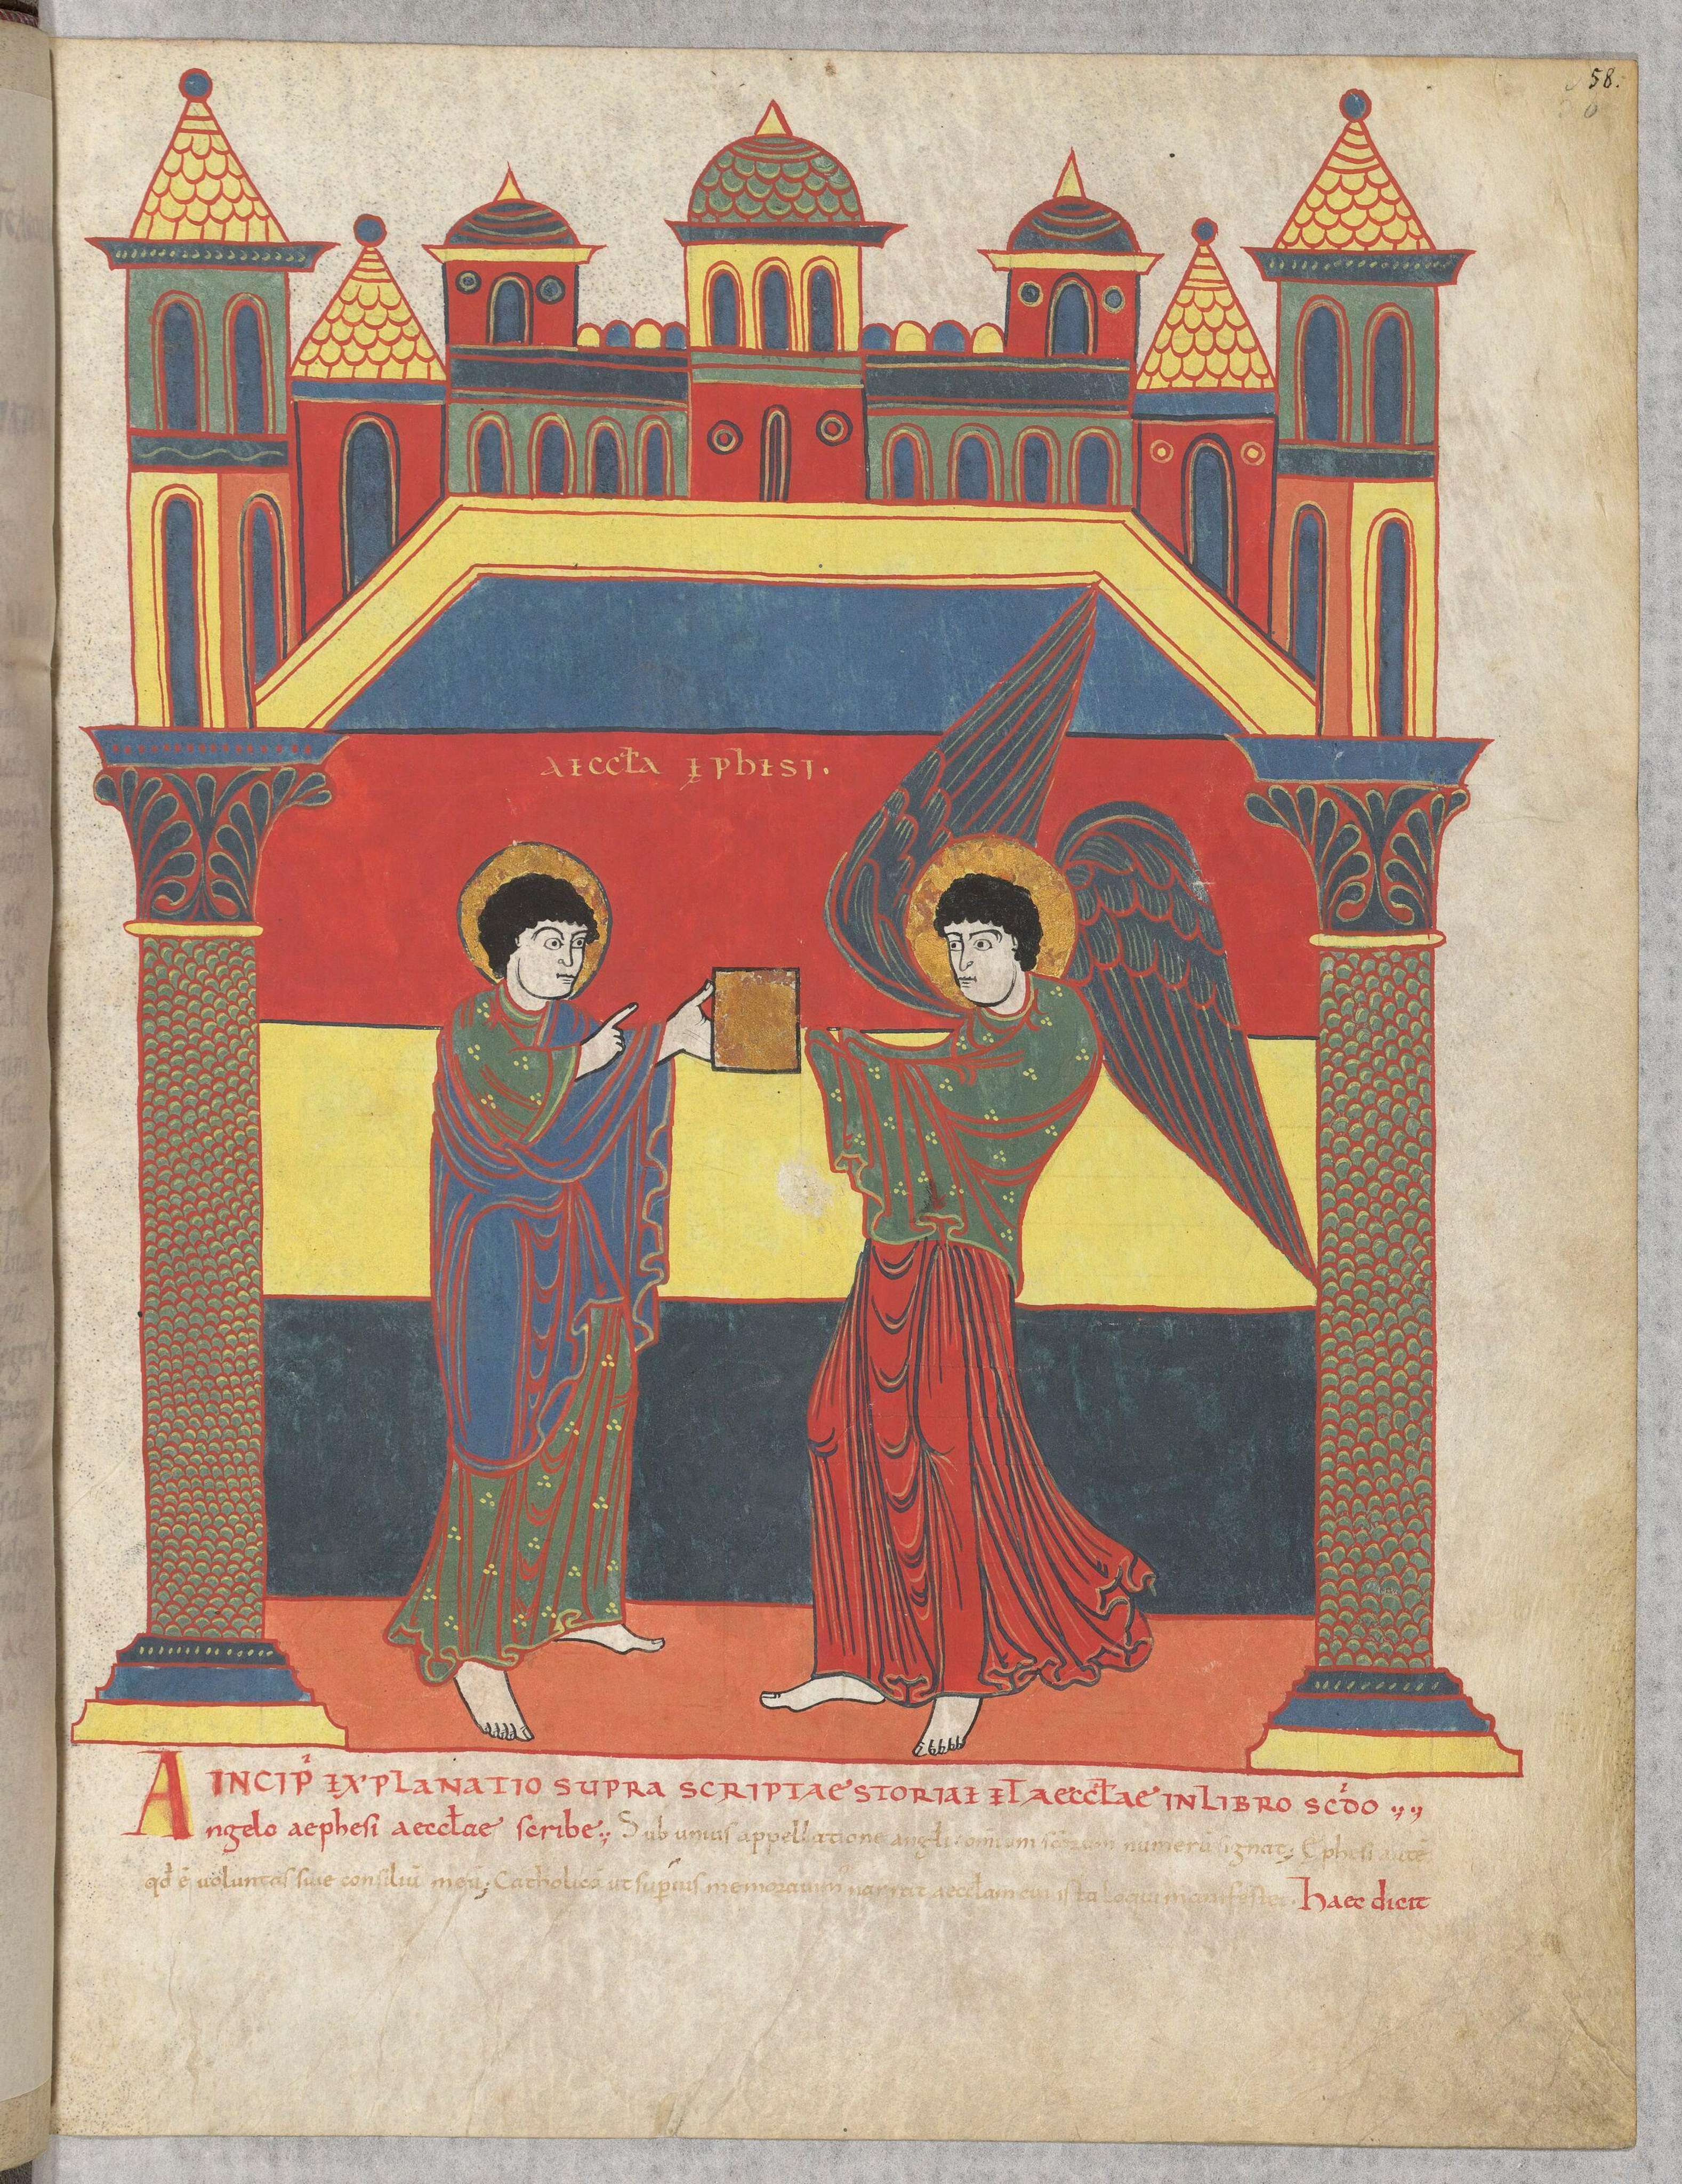 58.
aeccła ephesi.
INCIP̄ EXPLANATIO SUPRA SCRIPTAE STORIAE ET AECCŁAE IN LIBRO SCDO
Angelo aephesi aeccłae scribe; Sub unius appellatione angeli omnium numerū Ephesi autē
qđ ē uoluntas siue consiliū meū; Catholica ut superius memorauim narrat aeccłam cui ista loqui manifestet. haec dicit